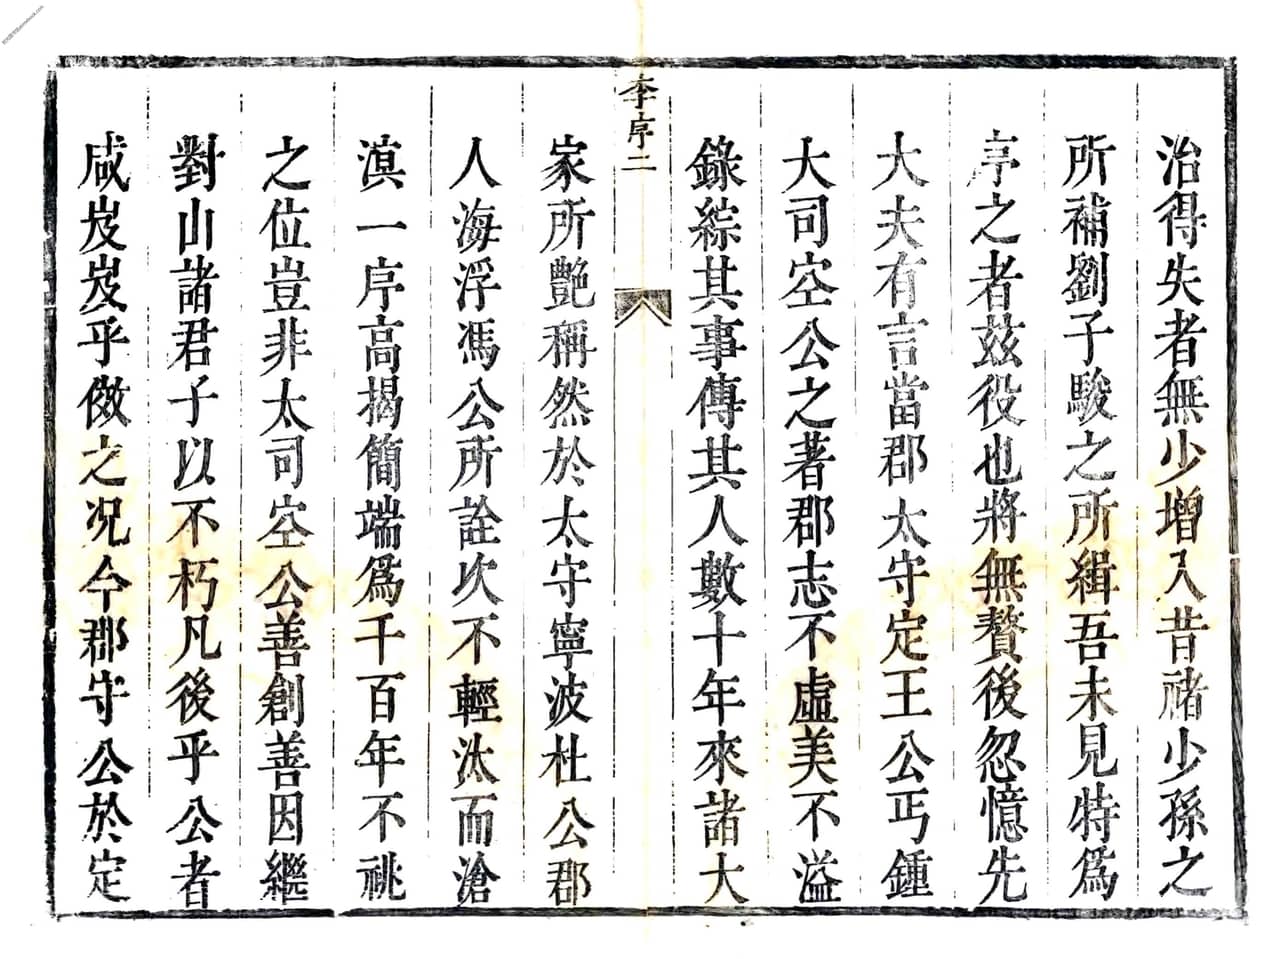 治得失者無少增入昔褚少孫之
所補劉子駿之所緝吾未見特爲
序之者茲役也將無贅後忽憶先
大夫有言當郡太守定王公丐鍾
大司空公之著郡志不虛美不溢
錄綜其事傳其人數十年來諸大
李序二
家所艶稱然於太守寧波杜公郡
人海浮馮公所詮次不輕汰而滄
溟一序高揭簡端爲千百年不祧
之位豈非太司空公善創善因繼
對山諸君子以不朽凡後乎公者
咸岌岌乎倣之况今郡守公於定